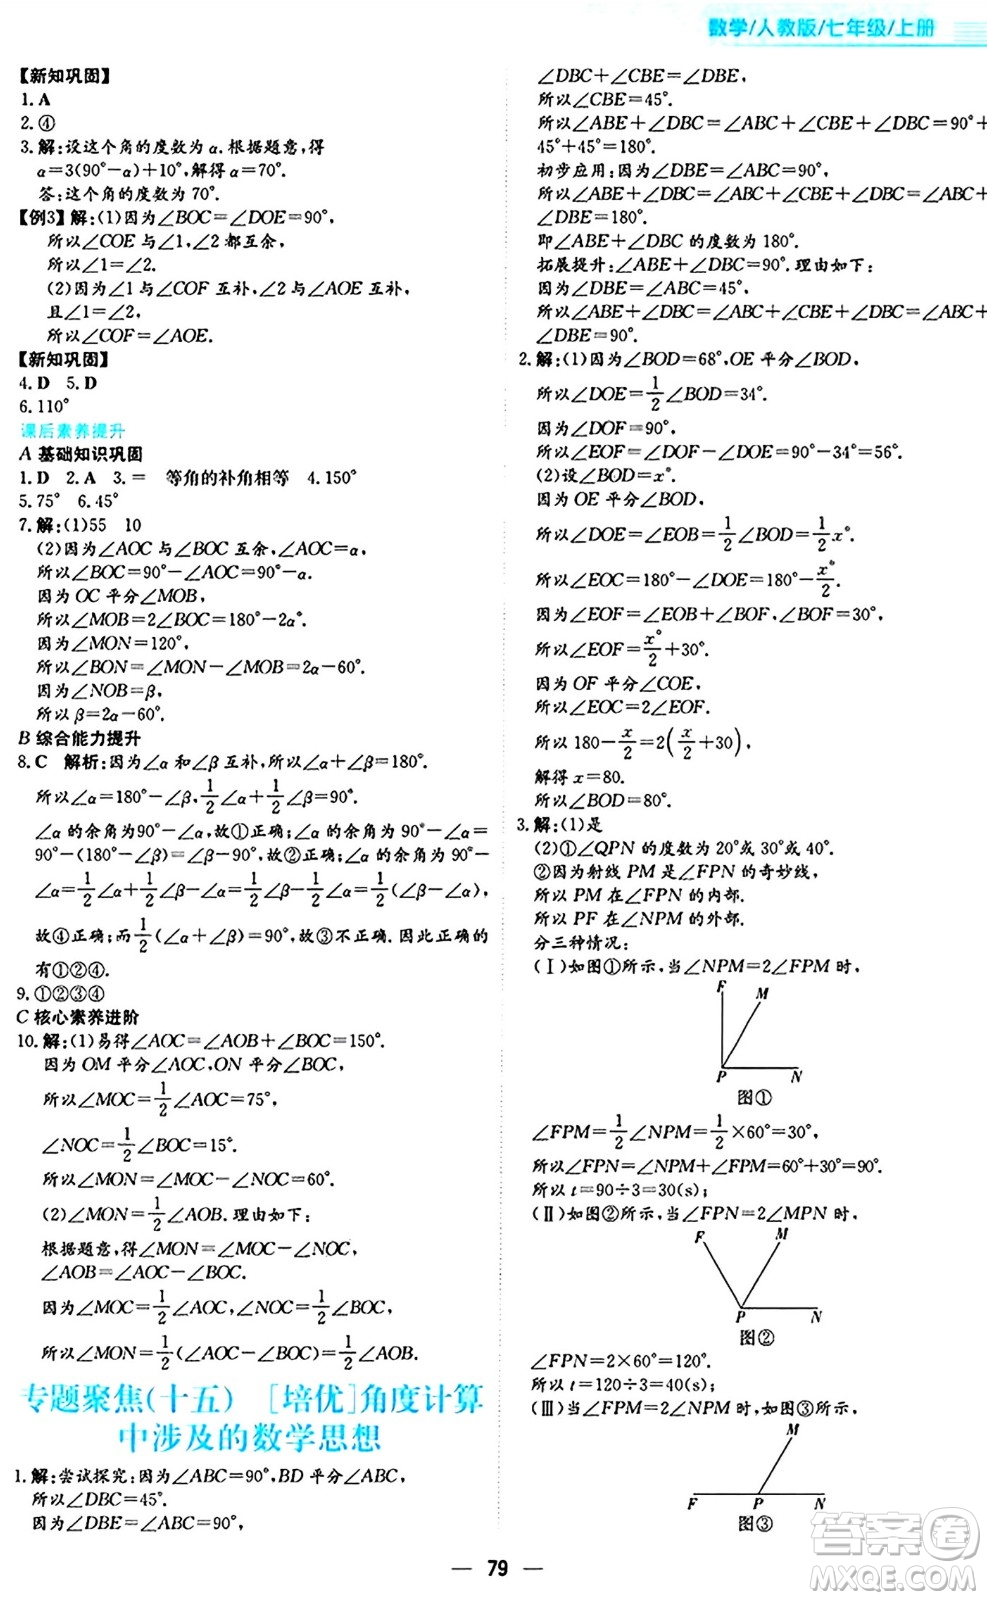 数学/人教版/七年级/上册
【新知巩固】
1.A
2.④
3.解:设这个角的度数为 α.根据题意,得
α=3(90°-α)+10°,解得 α=70°.
答:这个角的度数为 70°.
【例3】解:(1)因为∠BOC=∠DOE=90°,
所以∠COE 与∠1,∠2 都互余,
所以∠1=∠2.
(2)因为∠1 与∠COF 互补,∠2 与∠AOE 互补,
且∠1=∠2,
所以∠COF=∠AOE.
【新知巩固】
4.D 5.D
6.110°
课后素养提升
A 基础知识巩固
1.D 2.A 3.= 等角的补角相等 4.150°
5.75° 6.45°
7.解:(1)55 10
(2)因为∠AOC 与∠BOC 互余,∠AOC=α,
所以∠BOC=90°-∠AOC=90°-α.
因为 OC 平分∠MOB,
所以∠MOB=2∠BOC=180°-2α°.
因为∠MON=120°,
所以∠BON=∠MON-∠MOB=2α-60°.
因为∠NOB=β,
所以 β=2α-60°.
B 综合能力提升
8.C 解析:因为∠α 和∠β 互补,所以∠α+∠β=180°.
所以∠α=180°-∠β,1/2∠α+1/2∠β=90°.
∠α 的余角为90°-∠α,故①正确;∠α 的余角为 90°-∠α=
90°-(180°-∠β)=∠β-90°,故②正确;∠α 的余角为 90°-
∠α=1/2∠α+1/2∠β-∠α=1/2∠β-1/2∠α=1/2(∠β-∠α),
故④正确;而1/2(∠α+∠β)=90°,故③不正确.故正确的
有①②④.
9.①②③④
C 核心素养进阶
10.解:(1)易得∠AOC=∠AOB+∠BOC=150°.
因为 OM 平分∠AOC,ON 平分∠BOC,
所以∠MOC=1/2∠AOC=75°,
∠NOC=1/2∠BOC=15°.
所以∠MON=∠MOC-∠NOC=60°.
(2)∠MON=1/2∠AOB.理由如下:
根据题意,得∠MON=∠MOC-∠NOC,
∠AOB=∠AOC-∠BOC.
因为∠MOC=1/2∠AOC,∠NOC=1/2∠BOC,
所以∠MON=1/2(∠AOC-∠BOC)=1/2∠AOB.
专题聚焦(十五) [培优]角度计算
中涉及的数学思想
1.解:尝试探究:因为∠ABC=90°,BD 平分∠ABC,
所以∠DBC=45°.
因为∠DBE=∠ABC=90°,
∠DBC+∠CBE=∠DBE,
所以∠CBE=45°.
所以∠ABE+∠DBC=∠ABC+∠CBE+∠DBC=90°+
45°+45°=180°.
初步应用:因为∠ABC=∠DBE=90°,
所以∠ABE+∠DBC=∠ABC+∠CBE+∠DBC=∠ABC+
∠DBE=180°.
即∠ABE+∠DBC 的度数为 180°.
拓展提升:∠ABE+∠DBC=90°.理由如下:
因为∠DBE=∠ABC=45°,
所以∠ABE+∠DBC=∠ABC+∠CBE+∠DBC=∠ABC+
∠DBE=90°.
2.解:(1)因为∠BOD=68°,OE 平分∠BOD,
所以∠DOE=1/2∠BOD=34°.
因为∠DOF=90°,
所以∠EOF=∠DOF-∠DOE=90°-34°=56°.
(2)设∠BOD=x°.
因为 OE 平分∠BOD,
所以∠DOE=∠EOB=1/2∠BOD=1/2x°.
所以∠EOC=180°-∠DOE=180°-x°/2.
因为∠EOF=∠EOB+∠BOF,∠BOF=30°,
所以∠EOF=x°/2+30°.
因为 OF 平分∠COE,
所以∠EOC=2∠EOF.
所以 180-x/2=2(x/2+30),
解得 x=80.
所以∠BOD=80°.
3.解:(1)是
(2)①∠QPN 的度数为 20°或 30°或 40°.
②因为射线 PM 是∠FPN 的奇妙线,
所以 PM 在∠FPN 的内部.
所以 PF 在∠NPM 的外部.
分三种情况:
(Ⅰ)如图①所示,当∠NPM=2∠FPM 时,
F M
P N
图①
∠FPM=1/2∠NPM=1/2×60°=30°,
所以∠FPN=∠NPM+∠FPM=60°+30°=90°.
所以 t=90÷3=30(s);
(Ⅱ)如图②所示,当∠FPN=2∠MPN 时,
F M
P N
图②
∠FPN=2×60°=120°.
所以 t=120÷3=40(s);
(Ⅲ)如图③所示,当∠FPM=2∠NPM 时,
M
F P N
图③
— 79 —
答案圈
MXQE.COM